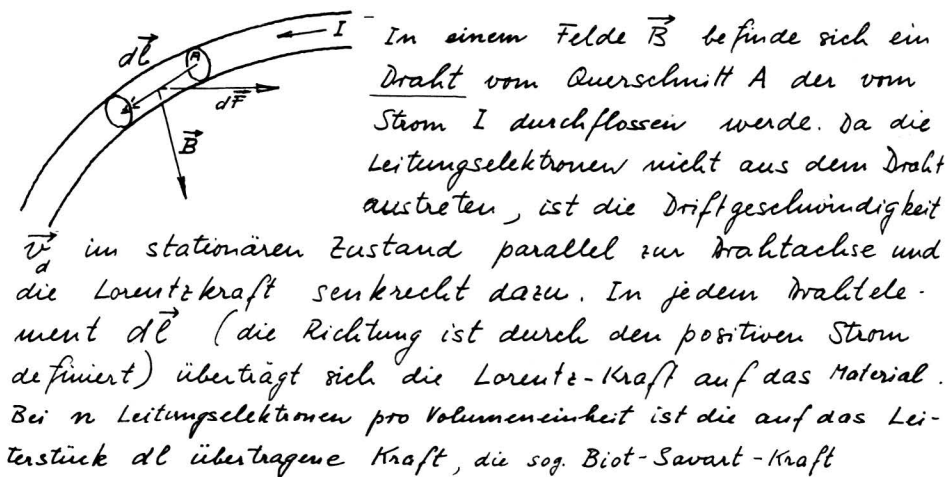 I
In einem Felde B⃗ befinde sich ein
dl⃗ A
Draht vom Querschnitt A der vom
dF⃗
Strom I durchflossen werde. Da die
B⃗
Leitungselektronen nicht aus dem Draht
austreten, ist die Driftgeschwindigkeit
v⃗d im stationären Zustand parallel zur Drahtachse und
die Lorentzkraft senkrecht dazu. In jedem Drahtele-
ment dl⃗ (die Richtung ist durch den positiven Strom
definiert) überträgt sich die Lorentz-Kraft auf das Material.
Bei n Leitungselektronen pro Volumeneinheit ist die auf das Lei-
terstück dl übertragene Kraft, die sog. Biot-Savart-Kraft